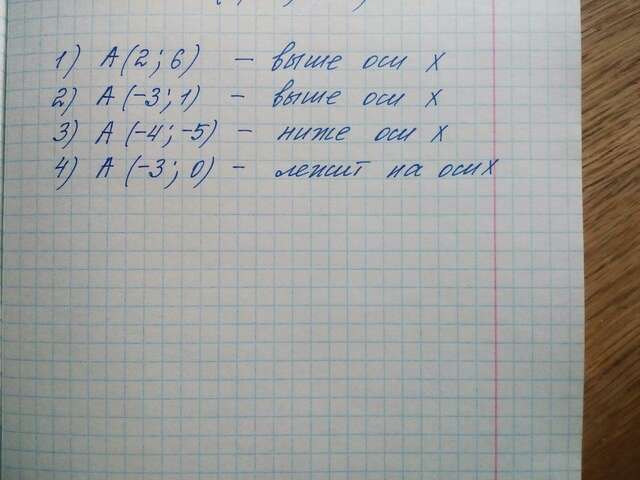 1) A(2; 6) – выше оси x
2) A(-3; 1) – выше оси x
3) A(-4; -5) – ниже оси x
4) A(-3; 0) – лежит на оси x